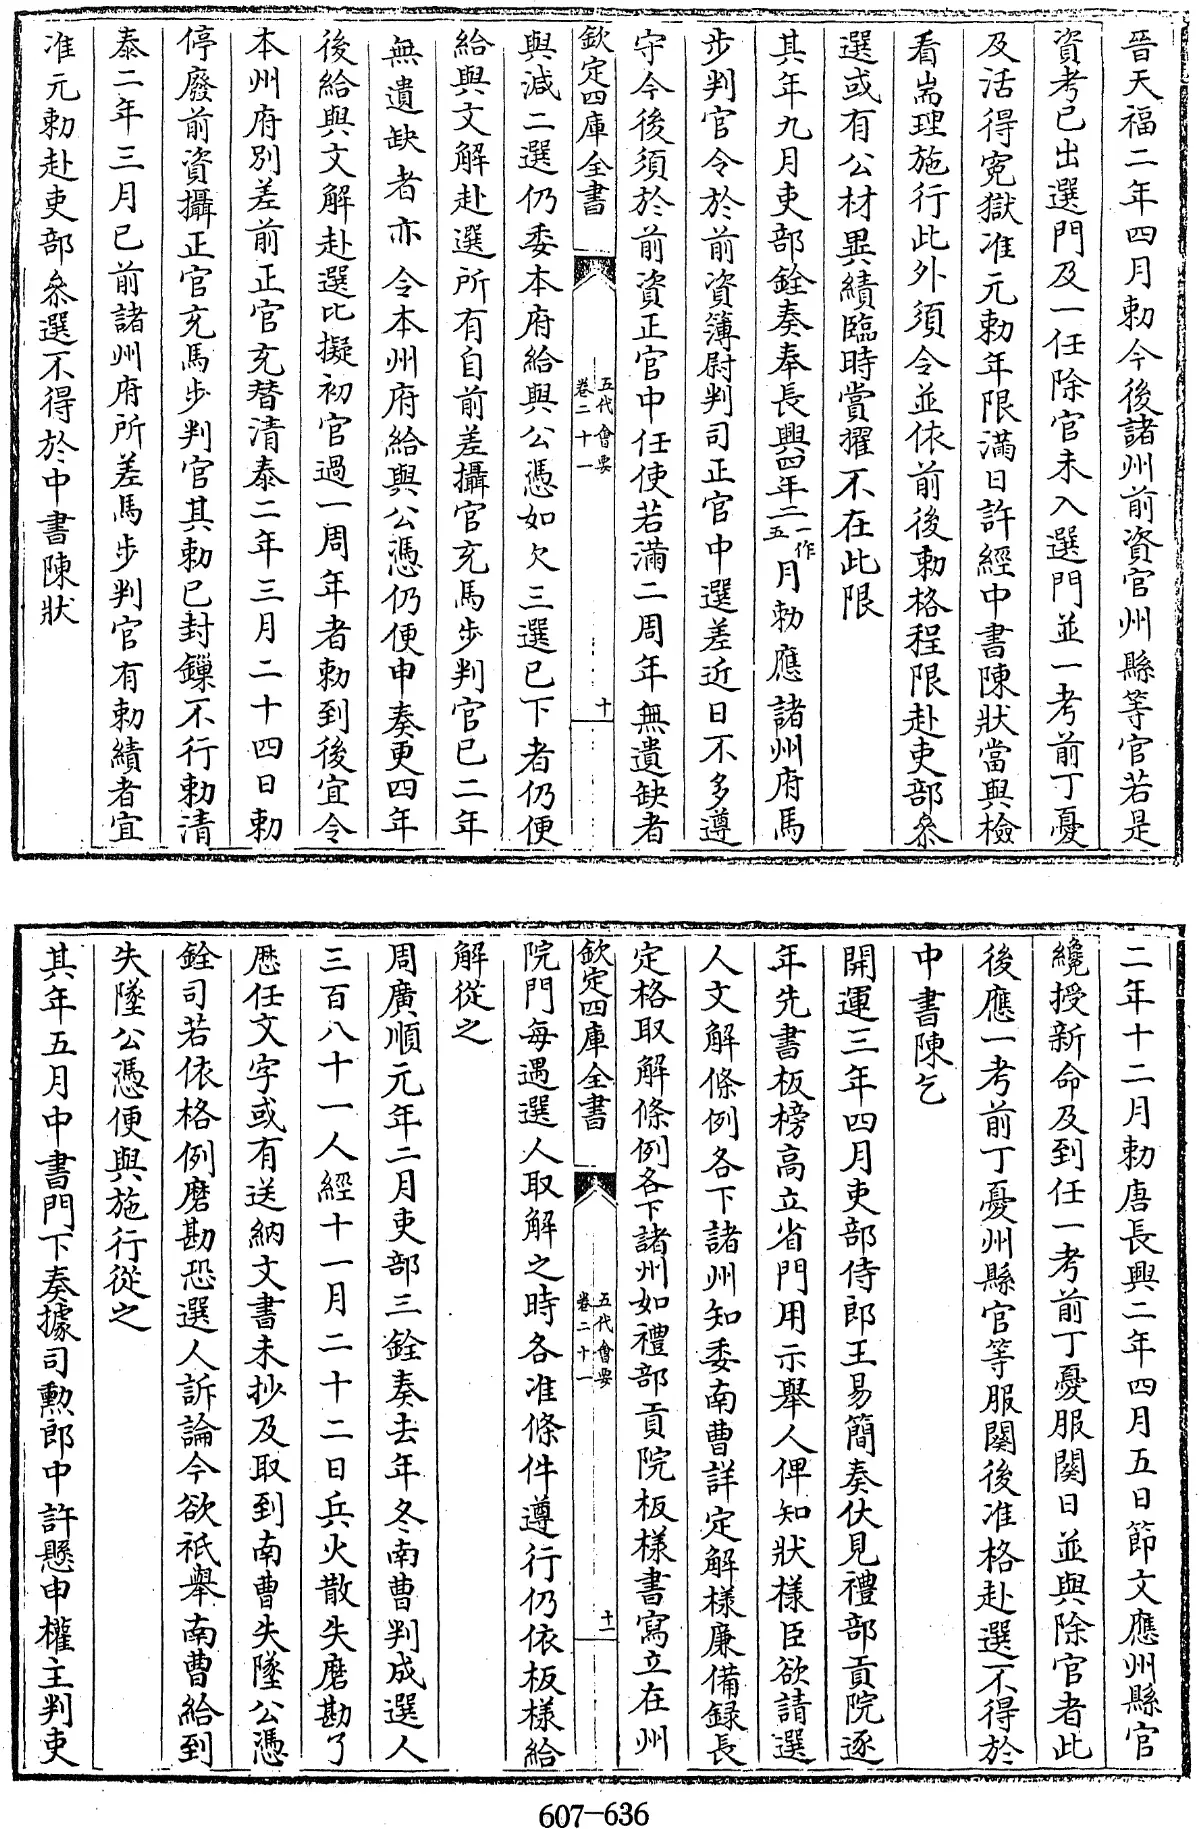 晉天福二年四月勅今後諸州前資官州縣等官若是
資考已出選門及一任除官未入選門並一考前丁憂
及活得寃獄准元勅年限滿日許經中書陳狀當與檢
看耑理施行此外須令並依前後勅格程限赴吏部叅
選或有公材異績臨時賞擢不在此限
其年九月吏部銓奏奉長興四年二一作五月勅應諸州府馬
步判官令於前資簿尉判司正官中選差近日不多遵
守今後須於前資正官中任使若滿二周年無遺缺者
欽定四庫全書
五代會要
卷二十一
十
與減二選仍委本府給與公憑如欠三選已下者仍便
給與文解赴選所有自前差攝官充馬步判官已二年
無遺缺者亦令本州府給與公憑仍便申奏更四年
後給與文解赴選比擬初官過一周年者勅到後宜令
本州府別差前正官充替清泰二年三月二十四日勅
停廢前資攝正官充馬步判官其勅已封鏁不行勅清
泰二年三月已前諸州府所差馬步判官有勅績者宜
准元勅赴吏部叅選不得於中書陳狀
二年十二月勅唐長興二年四月五日節文應州縣官
纔授新命及到任一考前丁憂服闋日並與除官者此
後應一考前丁憂州縣官等服闋後准格赴選不得於
中書陳乞
開運三年四月吏部侍郎王易簡奏伏見禮部貢院逐
年先書板榜高立省門用示舉人俾知狀様臣欲請選
人文解條例各下諸州知委南曹詳定解様廉備録長
定格取解條例各下諸州如禮部貢院板様書寫立在州
欽定四庫全書
五代會要
卷二十一
十一
院門每遇選人取解之時各准條件遵行仍依板様給
解從之
周廣順元年二月吏部三銓奏去年冬南曹判成選人
三百八十一人經十一月二十二日兵火散失磨勘了
歷任文字或有送納文書未抄及取到南曹失墜公憑
銓司若依格例磨勘恐選人訴論今欲祇舉南曹給到
失墜公憑便與施行從之
其年五月中書門下奏據司勲郎中許懸申權主判吏
607-636